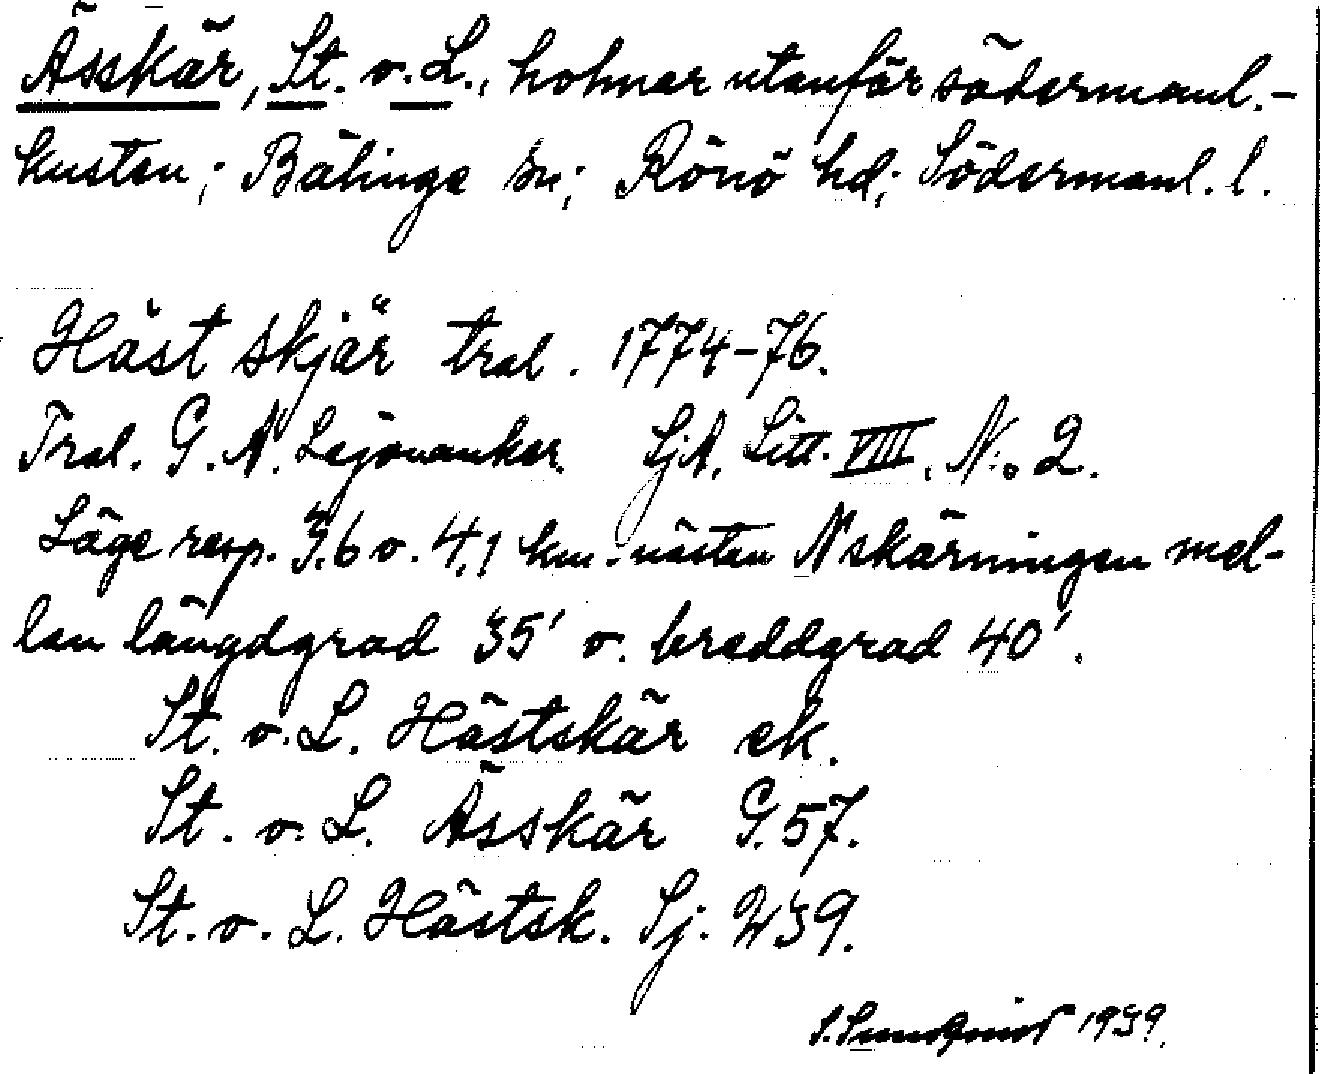 Ässkär, St. o. L., holmar utanför södermanl.-
kusten; Bälinge sn; Rönö hd; Södermanl. l.
Häst skjär tral. 1774-76.
Tral. G. A. Lejonanker. SjA. Litt. VIII, N:o 2.
Läge resp. 3.6 o. 4.1 km. nästan N skärningen mel-
lan längdgrad 35' o. breddgrad 40'.
St. o. L. Hästskär ek.
St. o. L. Ässkär G.57.
St. o. L. Hästsk. Sj. 239.
S. Sundqvist 1939.